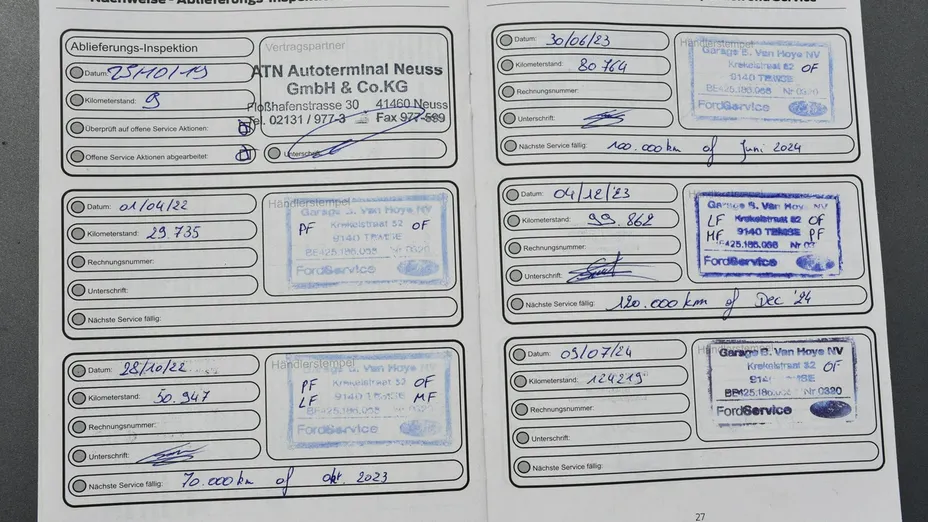 Ablieferungs-Inspektion
Datum: 25/10/19
Kilometerstand: 9
Überprüft auf offene Service Aktionen:
Offene Service Aktionen abgearbeitet:
Vertragspartner
ATN Autoterminal Neuss
GmbH & Co.KG
Floßhafenstrasse 30 41460 Neuss
Tel. 02131 / 977-3 Fax 977-599
Unterschrift
Datum: 01/04/22
Kilometerstand: 29.735
Rechnungsnummer:
Unterschrift:
Nächste Service fällig:
Händlerstempel
Garage B. Van Hoye NV
PF Krekelstraat 52 OF
9140 TEMSE
BE425.186.068 Nr 0320
FordService
Datum: 28/10/22
Kilometerstand: 50.947
Rechnungsnummer:
Unterschrift:
Nächste Service fällig: 70.000 km of okt. 2023
Händlerstempel
Garage B. Van Hoye NV
PF Krekelstraat 52 OF
LF 9140 TEMSE MF
BE425.186.068
FordService
Datum: 30/06/23
Kilometerstand: 80 764
Rechnungsnummer:
Unterschrift:
Nächste Service fällig: 100.000 km of Juni 2024
Händlerstempel
Garage B. Van Hoye NV
Krekelstraat 52 OF
9140 TEMSE
BE425.186.068 Nr 0320
FordService
Datum: 04/12/'23
Kilometerstand: 99.862
Rechnungsnummer:
Unterschrift:
Nächste Service fällig: 120.000 km of Dec '24
Garage B. Van Hoye NV
LF Krekelstraat 52 OF
MF 9140 TEMSE PF
BE425.186.068 Nr
FordService
Datum: 09/07/24
Kilometerstand: 124219
Rechnungsnummer:
Unterschrift:
Nächste Service fällig:
Händlerstempel
Garage B. Van Hoye NV
Krekelstraat 52 OF
BE425.186.068 Nr 0320
FordService
27